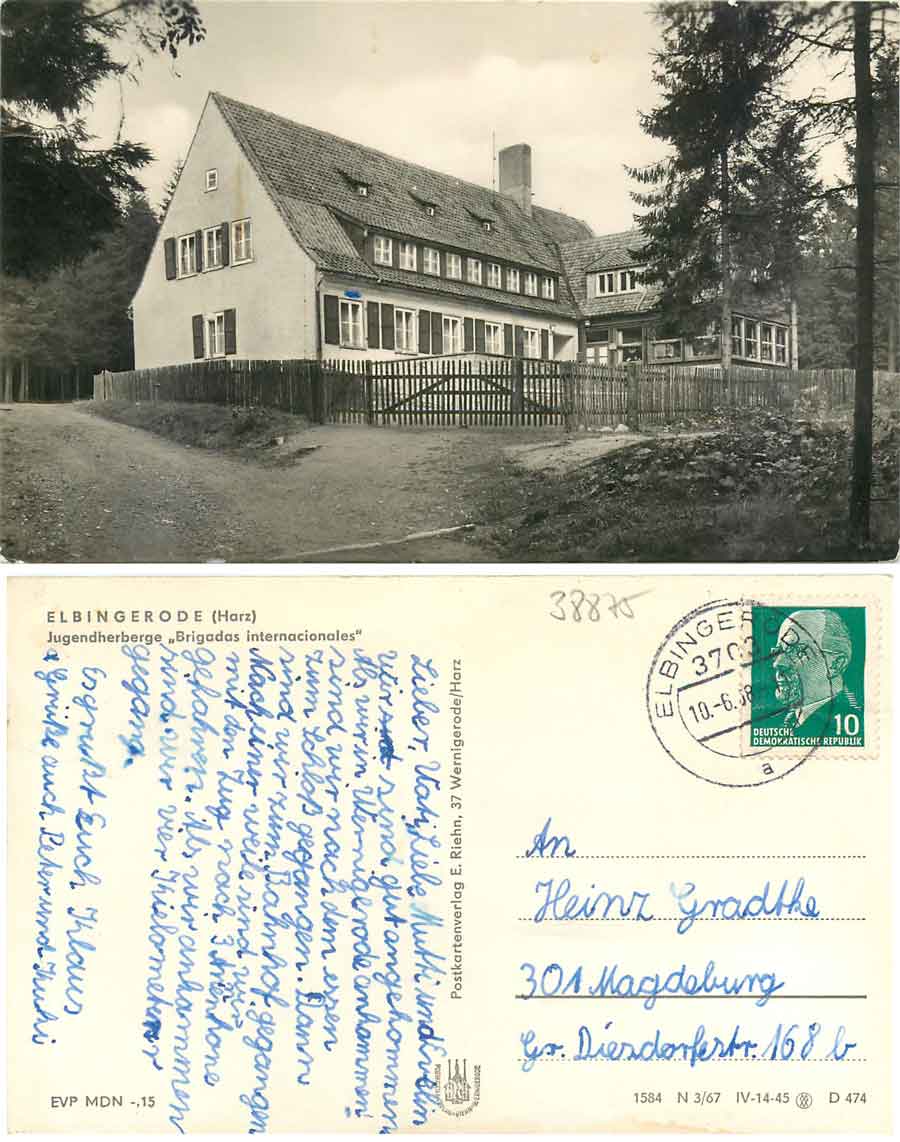 ELBINGERODE (Harz)
Jugendherberge „Brigadas internacionales"
38875
ELBINGERODE
3703
10.-6.68
a
DEUTSCHE
DEMOKRATISCHE REPUBLIK
10
Lieber Vati, Liebe Mutti und
wir sind gut angekommen
Als wir in Wernigerode ankammen
sind wir nach den essen
zum Schloß gegangen. Dann
sind wir zum Bahnhof gegangen
Nach einer weile sind wir
mit den Zug nach
gefahren. Als wir ankammen
sind wir vier Kielometer
gegang.
Es grüßt Euch Klaus
Grüße auch Peter und
Postkartenverlag E. Riehn, 37 Wernigerode/Harz
An
Heinz Gradtke
301 Magdeburg
Gr. Diesdorfestr. 168 b
EVP MDN -,15
1584 N 3/67 IV-14-45 D 474